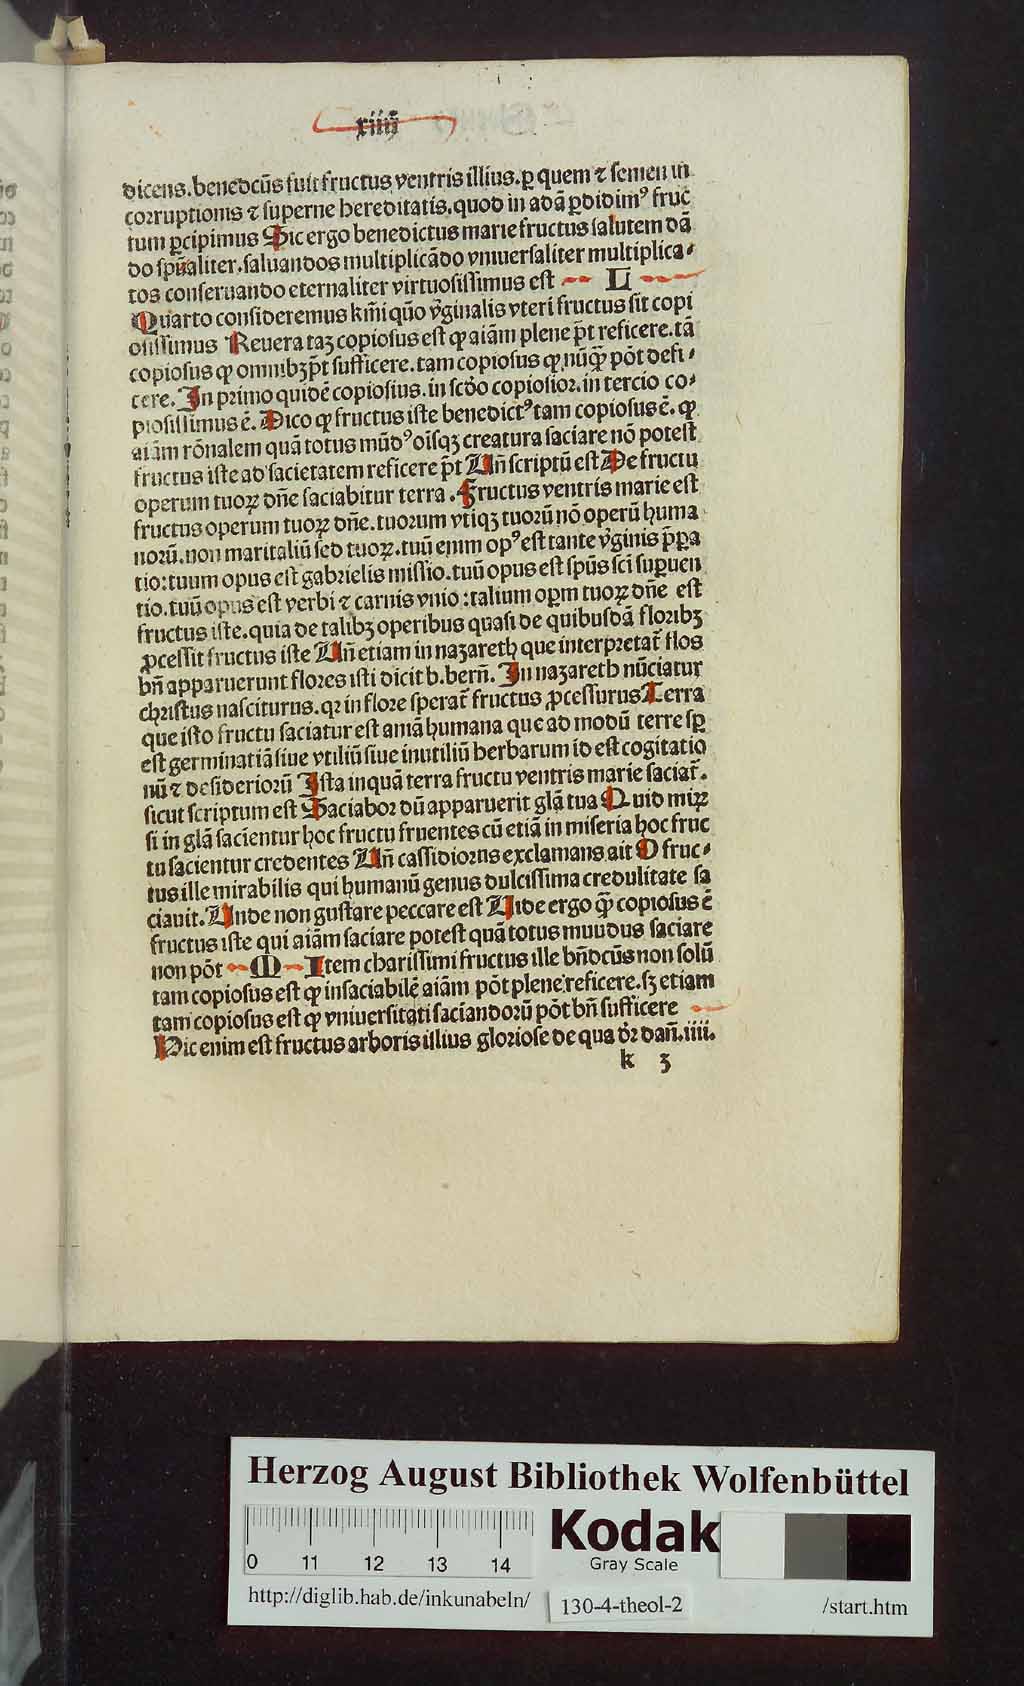 xiiij
dicens. benedcūs fuit fructus ventris illius. ꝑ quem ⁊ semen in
corruptionis ⁊ superne hereditatis. quod in adā ꝑdidimꝰ fruc
tum ꝑcipimus Sic ergo benedictus marie fructus salutem dā
do spūaliter. saluandos multiplicādo vniuersaliter multiplica⸗
tos conseruando eternaliter virtuosissimus est L
Quarto consideremus km̄i quō v̄ginalis vteri fructus sit copi
osissimus Reuera taꝫ copiosus est ꝙ aiām plene p̄t reficere. tā
copiosus ꝙ omnibꝫ p̄t sufficere. tam copiosus ꝙ nūꝙ̄ pōt defi⸗
cere. In primo quidē copiosius. in scdō copiosior. in tercio co⸗
piosissimus ē. Dico ꝙ fructus iste benedictꝰ tam copiosus ē. ꝙ
aiām rōnalem quā totus mūdꝰ oīsqꝫ creatura saciare nō potest
fructus iste ad sacietatem reficere p̄t Un̄ scriptū est De fructu
operum tuoꝝ dn̄e saciabitur terra. Fructus ventris marie est
fructus operum tuoꝝ dn̄e. tuorum vtiqꝫ tuorū nō operū huma
norū. non maritaliū sed tuoꝝ. tuū enim opꝰ est tante v̄ginis p̄ꝑa
tio: tuum opus est gabrielis missio. tuū opus est spūs sci suꝑuen
tio. tuū opus est verbi ⁊ carnis vnio: talium oꝑm tuoꝝ dn̄e est
fructus iste. quia de talibꝫ operibus quasi de quibusdā floribꝫ
ꝓcessit fructus iste Un̄ etiam in nazareth que interpretat̄ flos
bn̄ apparuerunt flores isti dicit b. bern̄. In nazareth nūciatur
christus nasciturus. qꝛ in flore sperat̄ fructus ꝓcessurus Terra
que isto fructu saciatur est amā humana que ad modū terre sꝑ
est germinatiā siue vtiliū siue inutiliū herbarum id est cogitatio
nū ⁊ desideriorū Ista inquā terra fructu ventris marie saciat̄.
sicut scriptum est Saciabor dū apparuerit glā tua Quid miꝝ
si in glā sacientur hoc fructu fruentes cū etiā in miseria hoc fruc
tu sacientur credentes Un̄ cassidiorus exclamans ait O fruc⸗
tus ille mirabilis qui humanū genus dulcissima credulitate sa
ciauit. Unde non gustare peccare est Vide ergo ꝙ̄ copiosus ē
fructus iste qui aiām saciare potest quā totus muudus saciare
non pōt M Item charissimi fructus ille bn̄dcūs non solū
tam copiosus est ꝙ insaciabilē aiām pōt plene reficere. sꝫ etiam
tam copiosus est ꝙ vniuersitati saciandorū pōt bn̄ sufficere
Hic enim est fructus arboris illius gloriose de qua dr̄ dan̄. iiii.
k 3
Herzog August Bibliothek Wolfenbüttel
0 11 12 13 14
Kodak
Gray Scale
http://diglib.hab.de/inkunabeln/ 130-4-theol-2 /start.htm